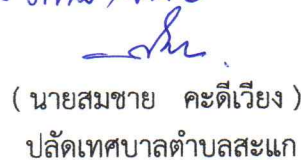 ( นายสมชาย คะดีเวียง )
ปลัดเทศบาลตำบลสะแก